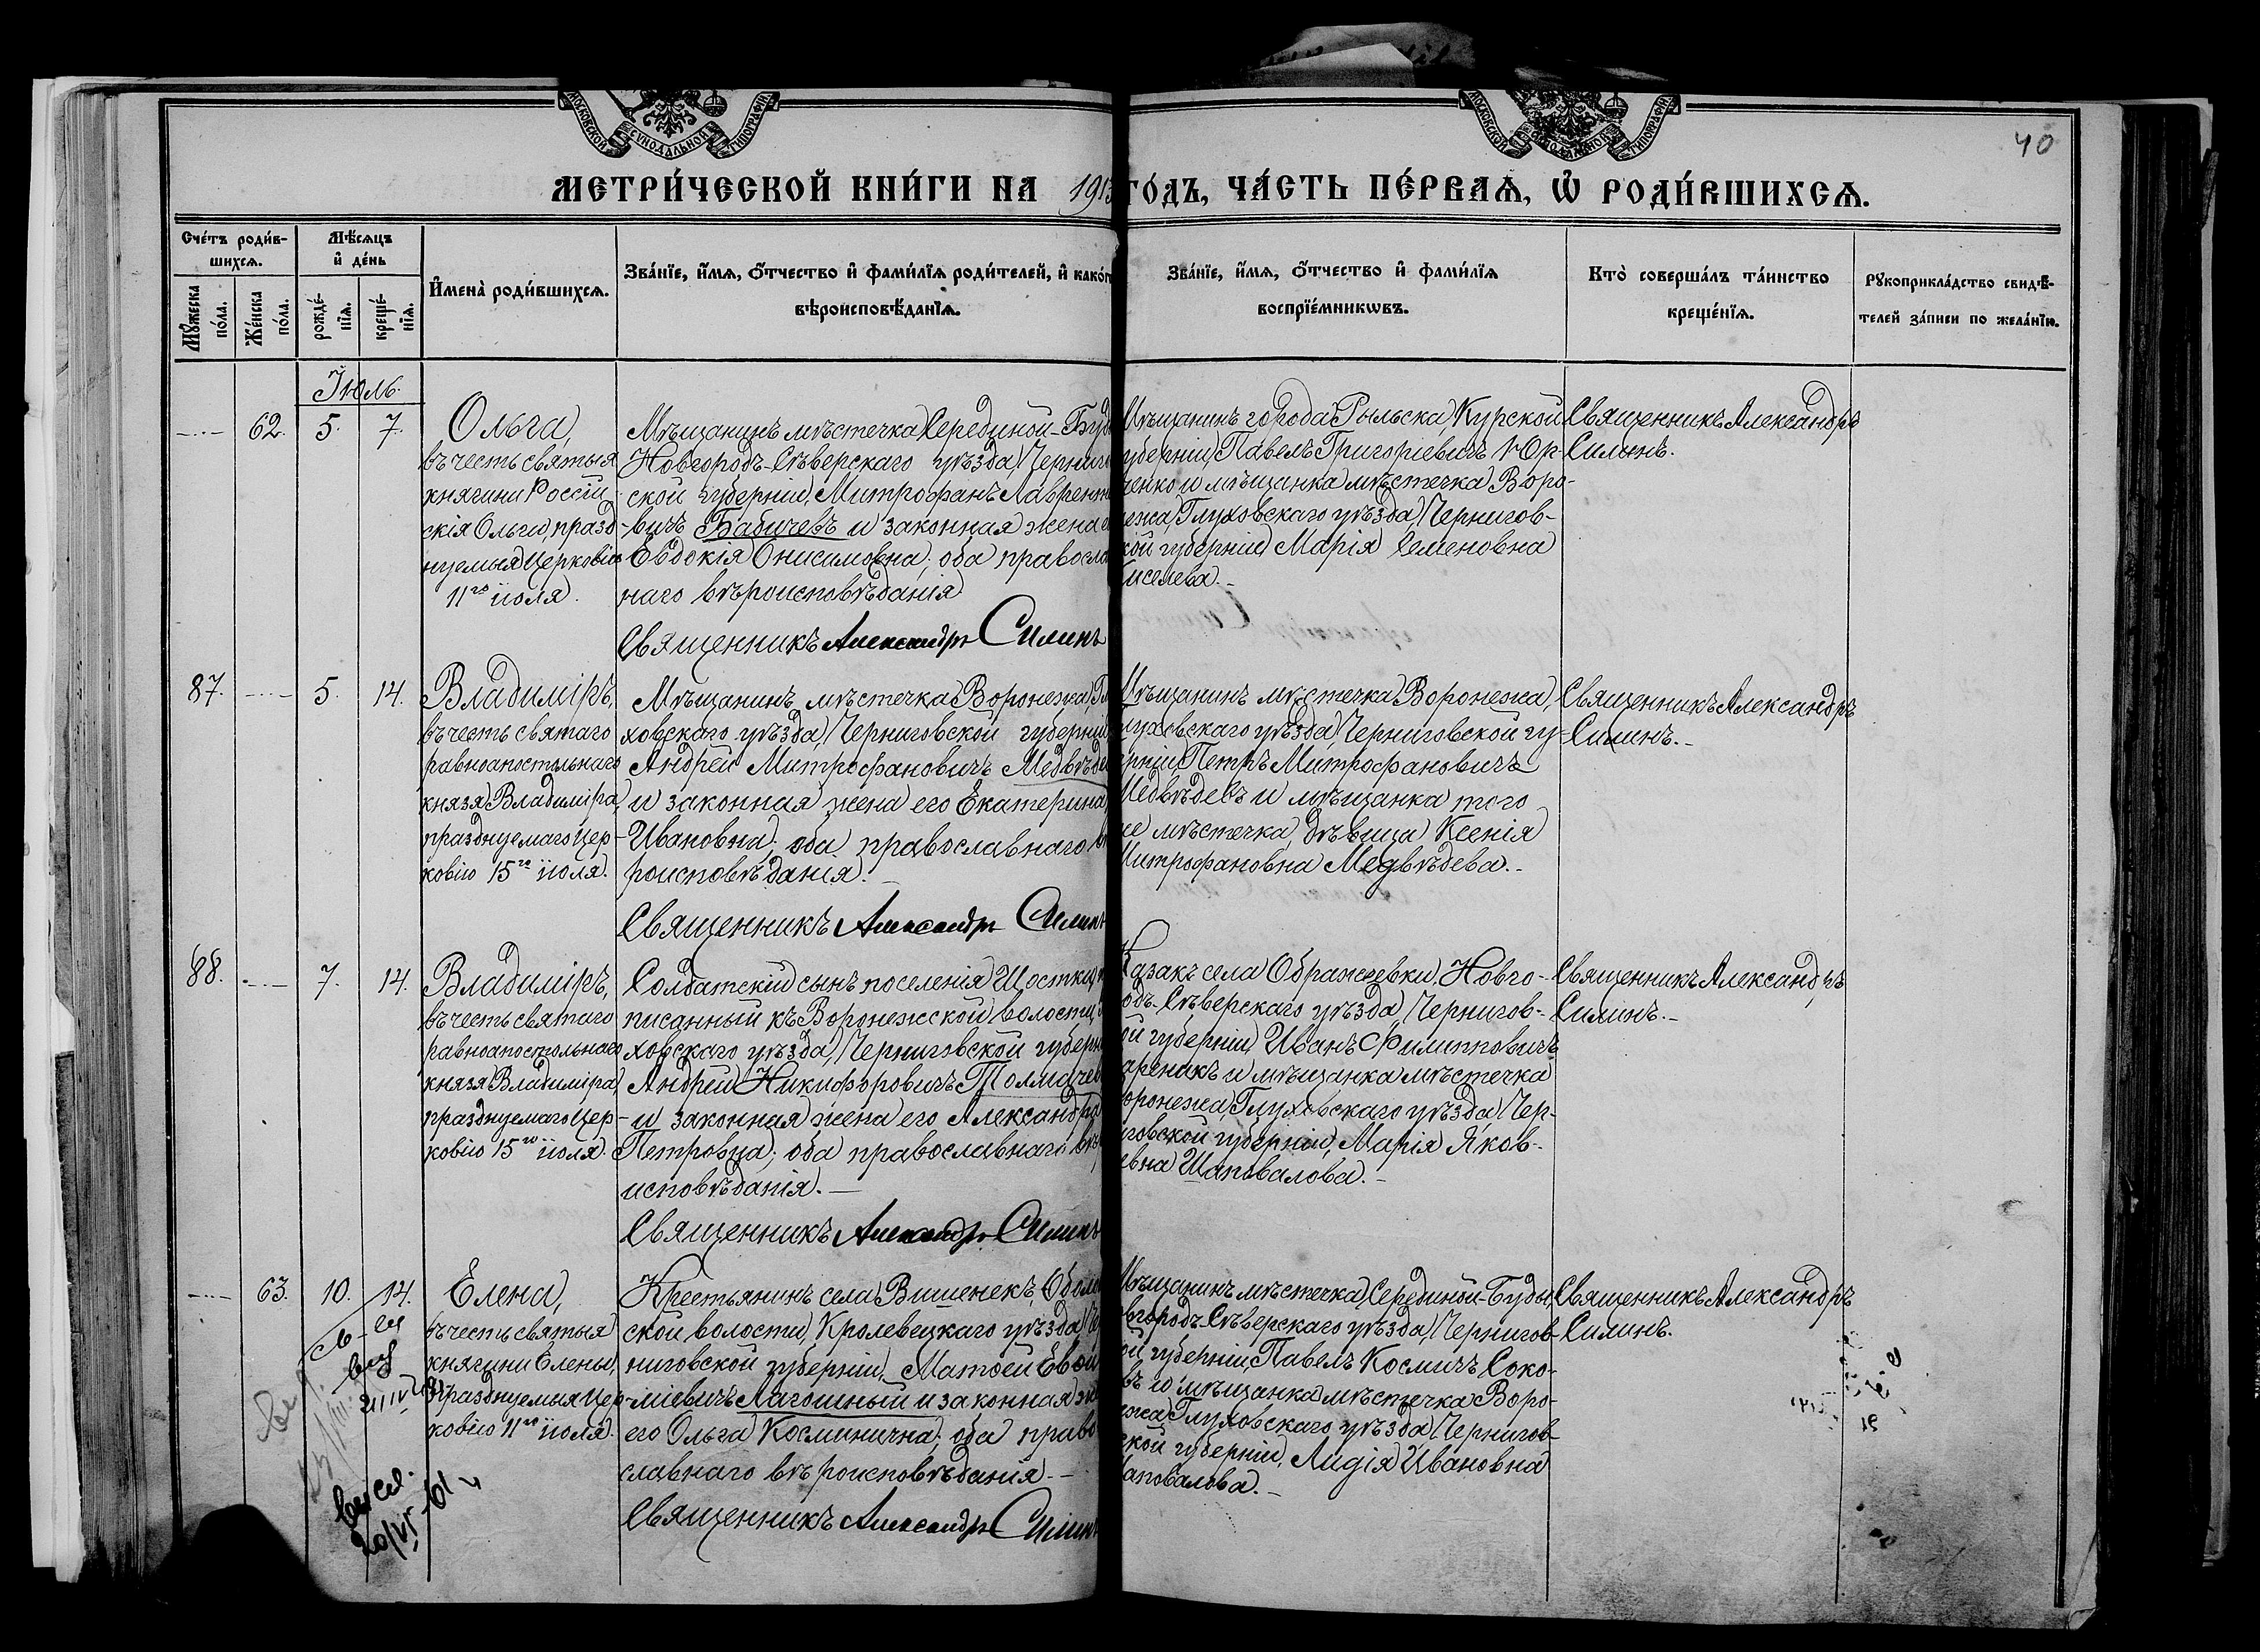 40
МОСКОВСКОЙ СѴНОДАЛЬНОЙ ТИПОГРАФІИ
МОСКОВСКОЙ СѴНОДАЛЬНОЙ ТИПОГРАФІИ
МЕТРИ́ЧЕСКОЙ КНИ́ГИ НА 1913 ГО́ДЪ, ЧА́СТЬ ПЕ́РВАѦ, Ѡ҆ РОДИ́ВШИХСѦ.
Сче́тъ роди́в-
шихсѧ.
Мѣ́сѧцъ
и҆ де́нь
Мꙋ́жеска
по́ла.
Же́нска
по́ла.
рожде́-
нїѧ.
креще́-
нїѧ.
И҆мена̀ роди́вшихсѧ.
Зва́нїе, и҆́мѧ, ѻ҆́тчество и҆ фами́лїѧ роди́телей, и҆ како́г
вѣроисповѣ́данїѧ.
Зва́нїе, и҆́мѧ, ѻ҆́тчество и҆ фами́лїѧ
воспрїе́мникѡвъ.
Кто̀ соверша́лъ та́инство
креще́нїѧ.
Рꙋкоприкла́дство свидѣ́-
телей за́писи по жела́нїю.
Іюль.
62. 5. 7.
Ольга,
въ честь святыя
княгини Россій-
скія Ольги, празд-
нуемыя Церковію
11го іюля.
Мѣщанинъ мѣстечка Серединой-Буд
Новгородъ-Сѣверскаго уѣзда, Черниго
ской губерніи, Митрофанъ Лаврент
вичъ Бабичевъ и законная жена
Евдокія Онисимовна; оба правосла
наго вѣроисповѣданія
Священникъ Александръ Силинъ
Мѣщанинъ города Рыльска, Курской
уберніи, Павелъ Григоріевичъ Юр-
ченко и мѣщанка мѣстечка Воро-
ежа, Глуховскаго уѣзда, Чернигов-
кой губерніи, Марія Семеновна
иселева.-
Священникъ Александръ
Силинъ.
87. 5. 14.
Владиміръ,
въ честь святаго
равноапостольнаго
князя Владиміра,
празднуемаго Цер-
ковію 15го іюля.
Мѣщанинъ мѣстечка Воронежа, Гл
ховскаго уѣзда, Черниговской губерніи
Андрей Митрофановичъ Медвѣде
и законная жена его Екатерина
Ивановна; оба православнаго в
роисповѣданія.-
Священникъ Александръ Силин
Мѣщанинъ мѣстечка Воронежа,
луховскаго уѣзда, Черниговской гу-
рніи, Петръ Митрофановичъ
Медвѣдевъ и мѣщанка того
е мѣстечка, дѣвица Ксенія
Митрофановна Медвѣдева.-
Священникъ Александръ
Силинъ.-
88. 7. 14.
Владиміръ,
въ честь святаго
равноапостольнаго
князя Владиміра,
празднуемаго Цер-
ковію 15го іюля.
Солдатскій сынъ поселенія Шостки,
писанный къ Воронежской волости,
ховскаго уѣзда, Черниговской губерн
Андрей Никифоровичъ Толмачев
и законная жена его Александра
Петровна; оба православнаго вѣ
исповѣданія.-
Священникъ Александръ Силинъ
Казакъ села Ображеевки, Новго-
одъ-Сѣверскаго уѣзда, Чернигов-
ой губерніи, Иванъ Филипповичъ
ареникъ и мѣщанка мѣстечка
оронежа, Глуховскаго уѣзда, Чер-
иговской губерніи, Марія Яков-
евна Шаповалова.-
Священникъ Александръ
Силинъ.-
63. 10. 14.
Елена,
въ честь святыя
княгини Елены,
празднуемыя Цер-
ковію 11го іюля.
Крестьянинъ села Вишенекъ, Оболо
ской волости, Кролевецкаго уѣзда, Че
ниговской губерніи, Матѳей Евѳи
міевичъ Лагошный и законная же
его Ольга Косминична; оба право
славнаго вѣроисповѣданія.-
Священникъ Александръ Силин
Мѣщанинъ мѣстечка Серединой-Буды,
овгородъ-Сѣверскаго уѣзда, Чернигов-
ой губерніи Павелъ Космичъ Соко-
въ и мѣщанка мѣстечка Воро-
ежа, Глуховскаго уѣзда, Чернигов-
ской губерніи, Лидія Ивановна
аповалова.-
Священникъ Александръ
Силинъ.
20/VI-61